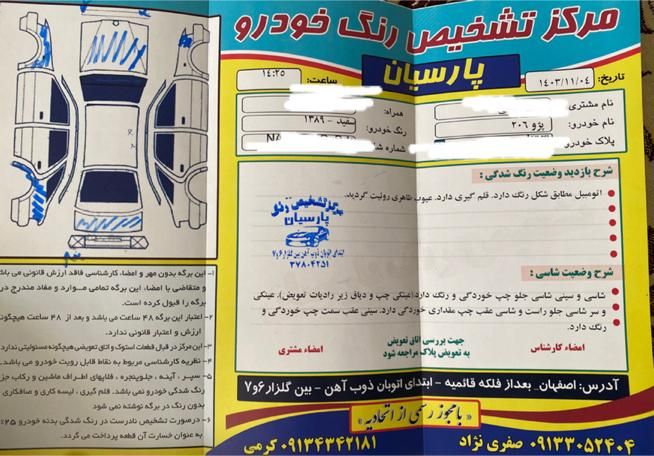 مرکز تشخیص رنگ خودرو
پارسیان
تاریخ: ۱۴۰۳/۱۱/۰۴
ساعت: ۱۴:۲۵
نام مشتری
همراه:
نام خودرو: پژو ۲۰۶
رنگ خودرو: سفید - ۱۳۸۹
پلاک خودرو
شماره شا
NA
شرح بازدید وضعیت رنگ شدگی :
اتومبیل مطابق شکل رنگ دارد. قلم گیری دارد. عیوب ظاهری روئیت گردید.
مرکز تشخیص رنگ
پارسیان
ابتدای اتوبان ذوب آهن بین گلزار ۶و۷
۳۷۸۰۴۲۵۱
شرح وضعیت شاسی :
شاسی و سینی شاسی جلو چپ خوردگی و رنگ دارد(عینکی چپ و دیاق زیر رادیات تعویض). عینکی
و سر شاسی جلو راست و شاسی عقب چپ مقداری خوردگی دارد. سینی عقب سمت چپ خوردگی و
رنگ دارد.
امضاء کارشناس
جهت بررسی اتاق تعویض
به تعویض پلاک مراجعه شود
امضاء مشتری
آدرس: اصفهان_ بعداز فلکه قائمیه - ابتدای اتوبان ذوب آهن - بین گلزار ۶و۷
« با مجوز رسمی از اتحادیه »
۰۹۱۳۳۰۵۲۴۰۴ صفری نژاد
۰۹۱۳۴۳۴۲۱۸۱ کرمی
۱- این برگه بدون مهر و امضاء، کارشناسی فاقد ارزش قانونی می باش
و متقاضی با امضاء این برگه تمامی موارد و مفاد مندرج در
برگه را قبول کرده است.
۲- اعتبار این برگه ۴۸ ساعت می باشد و بعد از ۴۸ ساعت هیچگونه
ارزش و اعتبار قانونی ندارد.
۳- این مرکز در قبال قطعات استوک و اتاق تعویضی هیچگونه مسئولیتی ندارد
۴- نظریه کارشناسی مربوط به نقاط قابل رویت خودرو می باشد.
۵- سپر ، آینه ، جلوپنجره ، قلابهای اطراف ماشین و رکاب جز
رنگ شدگی خودرو نمی باشد. قلم گیری ، لیسه کاری و صافکاری
بدون رنگ در برگه نوشته نمی شود
۶- درصورت تشخیص نادرست در رنگ شدگی بدنه خودرو ۲۵٪
به عنوان خسارت آن قطعه پرداخت می گردد.